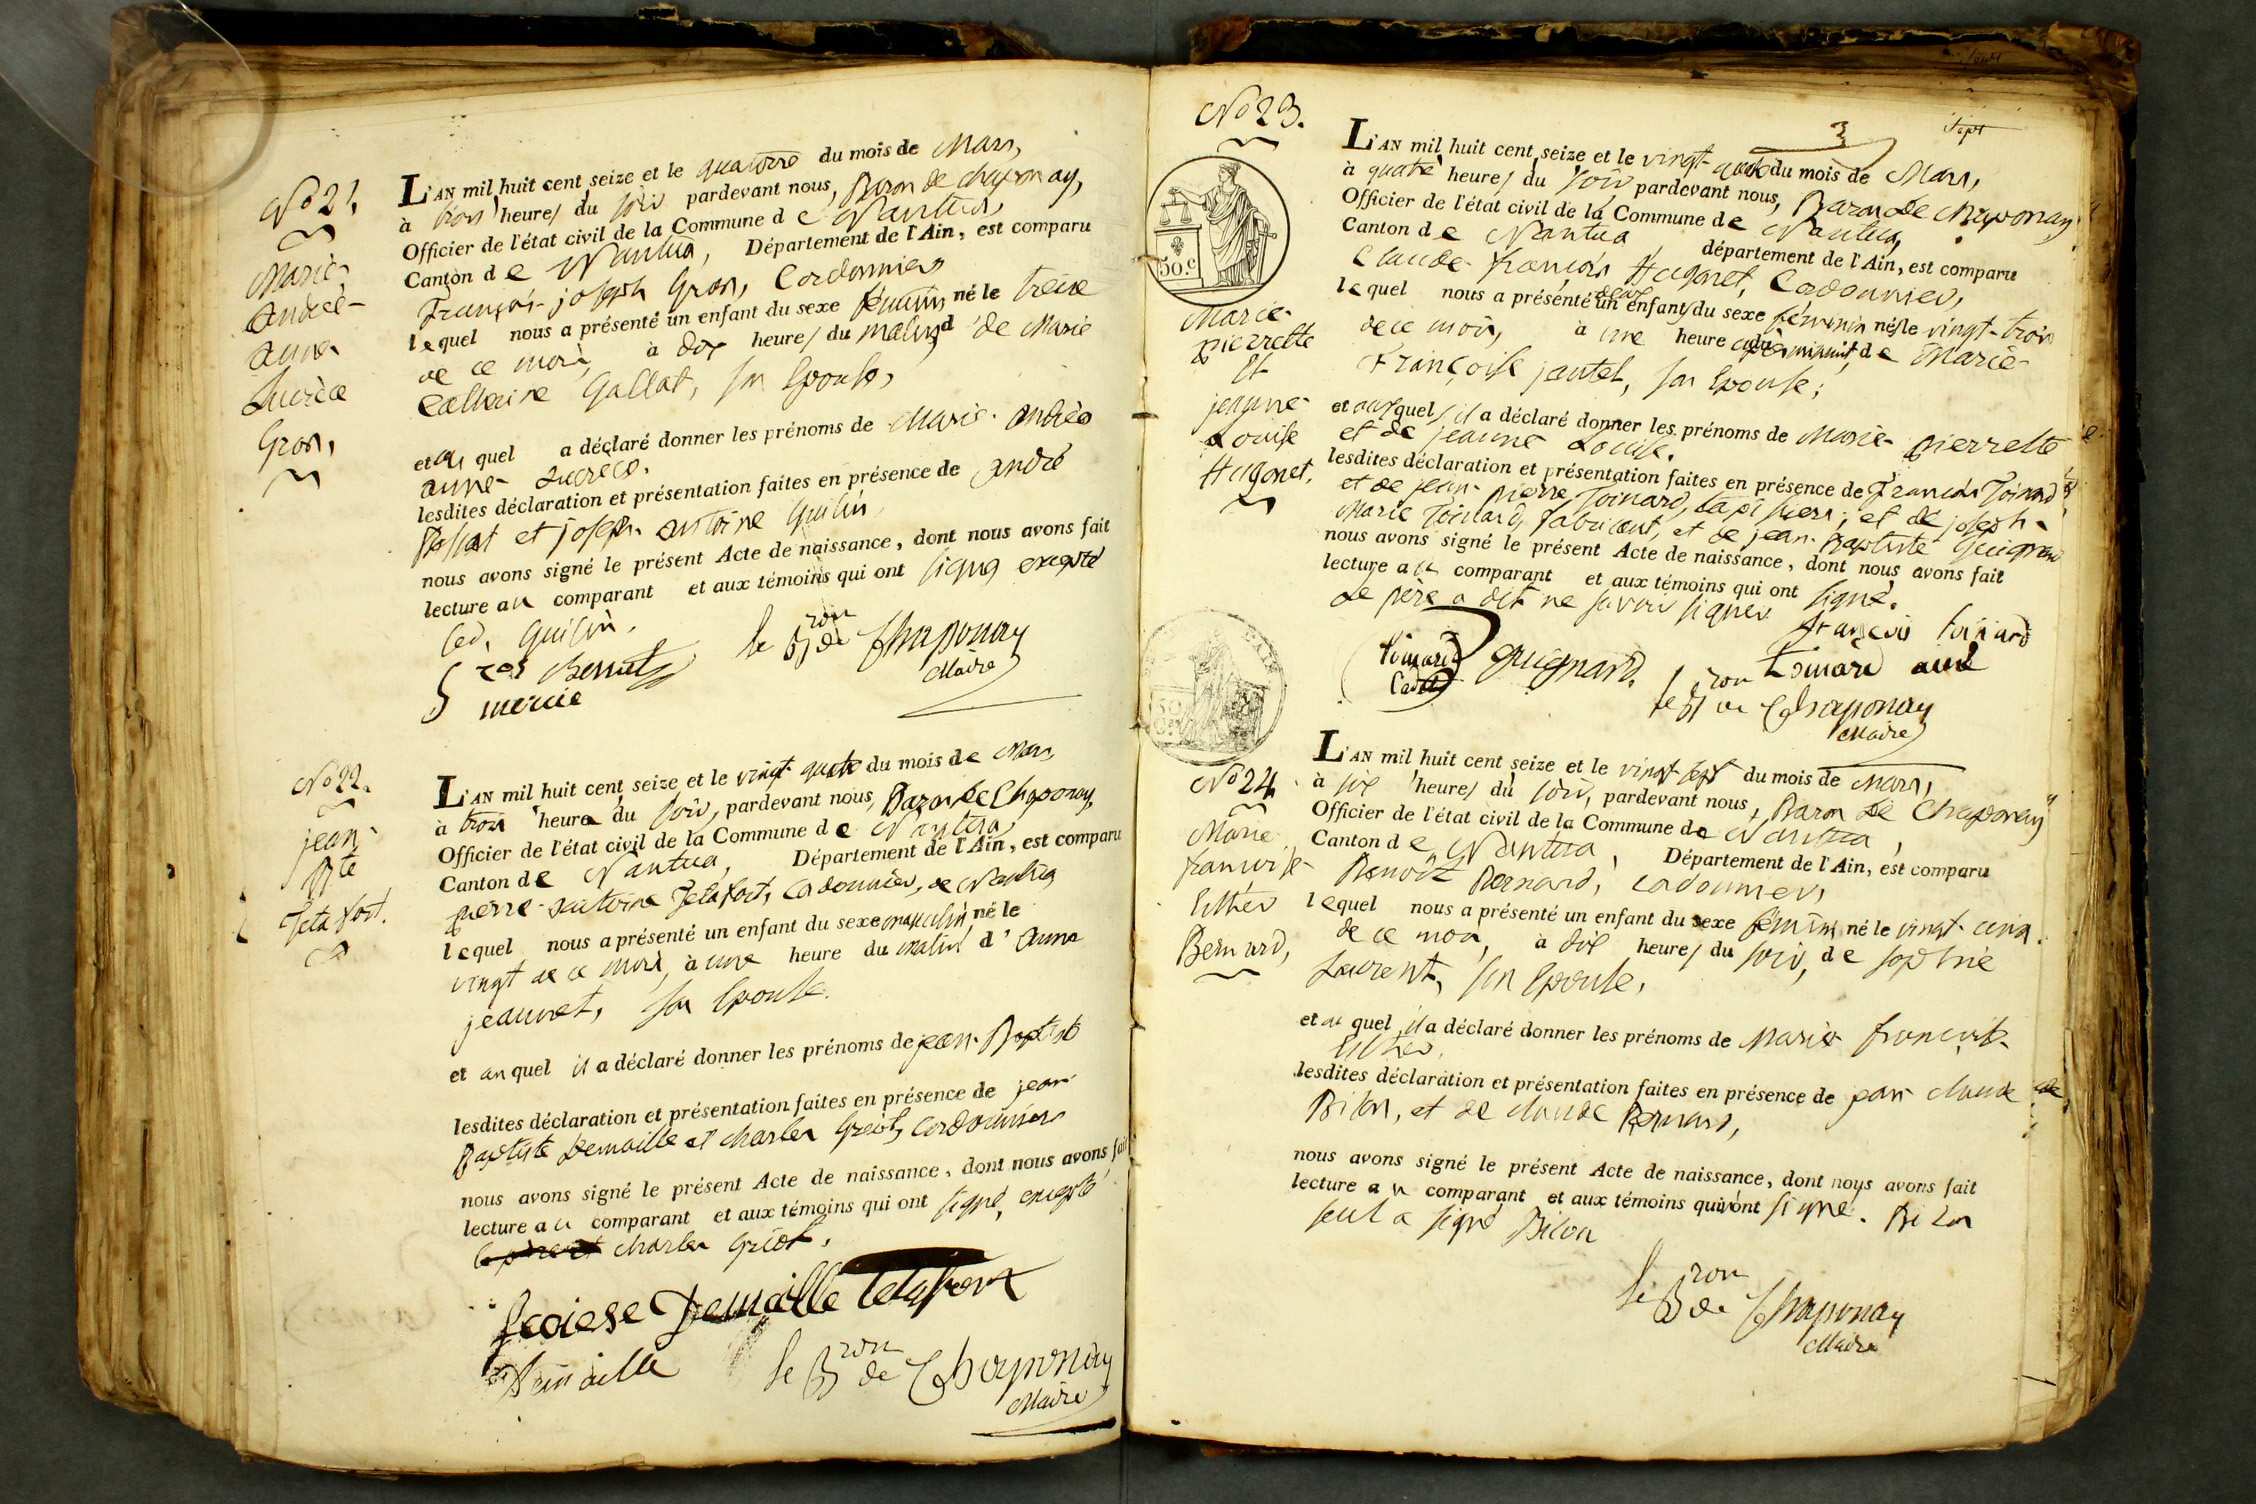 No 21.
Marie-
Andrée-
anne
Lucrèce
Gros,
L'AN mil huit cent seize et le quatorze du mois de Mars,
à trois heures du soir pardevant nous, Baron de chaponay,
Officier de l'état civil de la Commune de Nantua,
Canton de Nantua, Département de l'Ain, est comparu
François-joseph Gros, Cordonnier
lequel nous a présenté un enfant du sexe féminin né le treize
de ce mois, à dix heures du matin, d de Marie
Catherine Gallat, son Epouse,
et au quel a déclaré donner les prénoms de Marie-andrée
anne-Lucrèce.
lesdites déclaration et présentation faites en présence de andré
et joseph-antoine Guilin,
nous avons signé le présent Acte de naissance, dont nous avons fait
lecture au comparant et aux témoins qui ont signé excepté
led. Guilin.
le Bron de Chaponay
Maire
No 22.
jean-
Bte
Tetafort.
L'AN mil huit cent seize et le vingt-quatre du mois de Mars,
à trois heures du soir, pardevant nous, Baron de Chaponay,
Officier de l'état civil de la Commune de Nantua,
Canton de Nantua, Département de l'Ain, est comparu
pierre-antoine Tetafort, Cordonnier, de Nantua
lequel nous a présenté un enfant du sexe masculin né le
vingt de ce mois, à une heure du matin d'anne
jeannet, son Epouse.
et au quel il a déclaré donner les prénoms de jean-Baptiste
lesdites déclaration et présentation faites en présence de jean
Baptiste Demaille et charles Griot, Cordonniers
nous avons signé le présent Acte de naissance, dont nous avons fait
lecture au comparant et aux témoins qui ont signé, excepté
charles Griot.
Demaille tetafort
Demaille
le Bron de Chaponay
Maire
3
Sept
No 23.
50.c
Marie-
pierrette
Et
jeanne-
Louise
Hugonet.
L'AN mil huit cent seize et le vingt-quatre du mois de Mars,
à quatre heures du soir pardevant nous, Baron de Chaponay
Officier de l'état civil de la Commune de Nantua,
Canton de Nantua département de l'Ain, est comparu
Claude-françois Hugonet, Cordonnier,
lequel nous a présenté deux un enfants du sexe féminin nés le vingt-trois
de ce mois, à une heure après minuit, de Marie-
Françoise jantet, son Epouse;
et auxquels il a déclaré donner les prénoms de Marie-pierrette
et de jeanne Louise.
lesdites déclaration et présentation faites en présence de François Toinard
et de jean-pierre Toinard, tapissiers; et de joseph-
Marie Toinard, fabricant, et de jean-Baptiste Guignard
nous avons signé le présent Acte de naissance, dont nous avons fait
lecture au comparant et aux témoins qui ont signé.
Le père a dit ne savoir signer
françois toinard
toinard
Cadet
Guignard.
toinard ainé
le Bron de Chaponay
Maire
No 24.
Marie
francoise
Esther
Bernard,
L'AN mil huit cent seize et le vingt sept du mois de Mars,
à six heures du soir, pardevant nous, Baron de Chaponay
Officier de l'état civil de la Commune de Nantua,
Canton de Nantua, Département de l'Ain, est comparu
Benoît Bernard, Cordonnier,
lequel nous a présenté un enfant du sexe féminin né le vingt-cinq
de ce mois, à dix heures du soir, de sophie
Laurent, son Epouse,
et au quel il a déclaré donner les prénoms de Marie francoise-
Esther,
lesdites déclaration et présentation faites en présence de jean Claude
Bilon, et de claude Bernard,
nous avons signé le présent Acte de naissance, dont nous avons fait
lecture au comparant et aux témoins qui ont signé. Bilon
seul a signé Bilon
le Bron de Chaponay
Maire